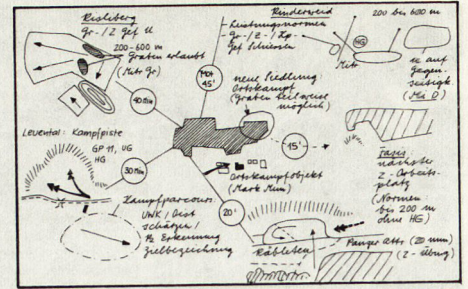 Risliberg
Gr-/Z Gef U
200-600 m
Graten erlaubt
(Mitr Gr)
40 Min
Mot
45'
Rinderweid
- Leistungsnormen
- Gr-/Z-/Kp-
Gef Schiessen
Mitr
HG
200 bis 600 m
auf
Gegen-
seitigk.
(Mi D)
neue Siedlung
Ortskampf
(Graten teilweise
möglich)
15'
Leuental: Kampfpiste
GP 11, UG
HG
30 Min
Ortskampfobjekt
(Mark Mun)
20'
Kampfparcours:
UWK / Dist
schätzen /
Pz Erkennung
Zielbezeichnung
Fasis:
nächster
Z-Arbeits-
platz
(Normen
bis 200 m
ohne HG)
Räbleten
Panzer Attr (20 mm)
(Z-Übung)